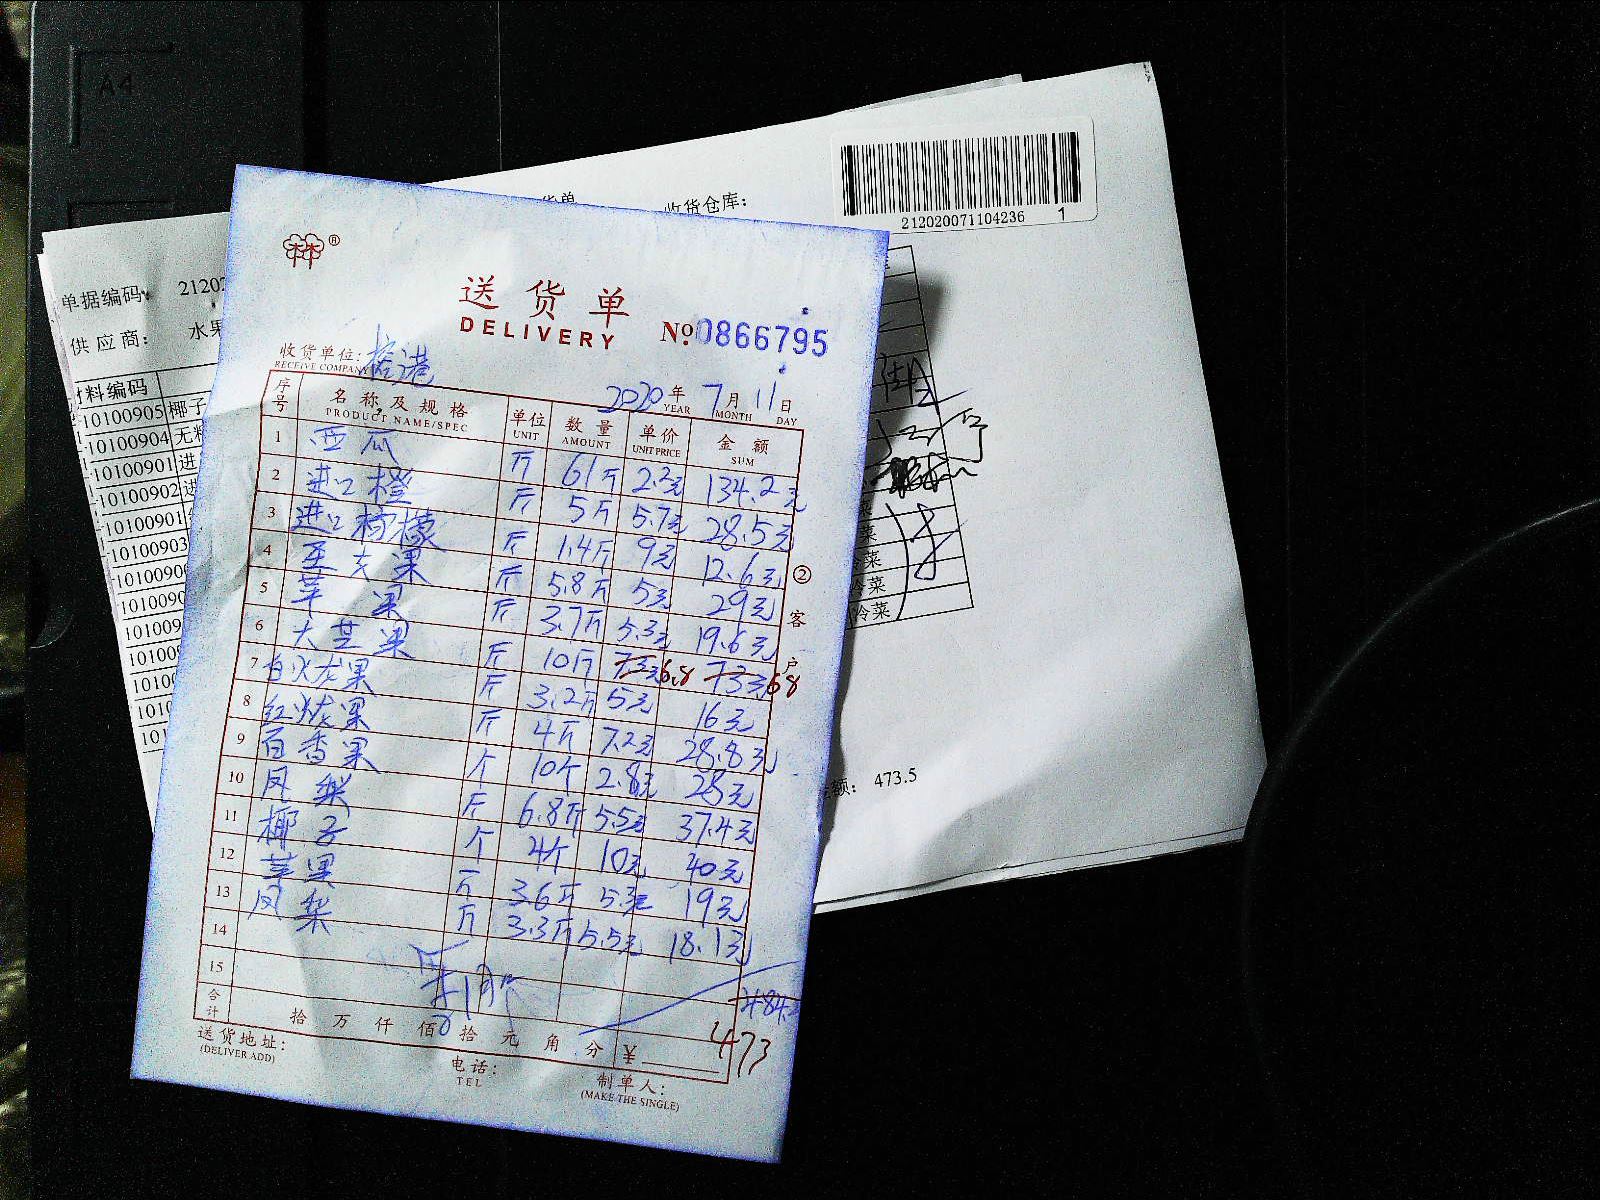 A4
收货仓库:
212020071104236 1
单据编码: 21202
供应商: 水果
材料编码
10100905 椰子
10100904 无籽
10100901 进
10100902 进
10100901
10100903
1010090
101009
冷菜
冷菜
金额: 473.5
林®
送货单
DELIVERY
№ 0866795
收货单位: 榕港
RECEIVE COMPANY
2020年 7月 11日
YEAR MONTH DAY
序号 名称及规格 单位 数量 单价 金额
PRODUCT NAME/SPEC UNIT AMOUNT UNIT PRICE SUM
1 西瓜 斤 61斤 2.2元 134.2元
2 进口橙 斤 5斤 5.7元 28.5元
3 进口柠檬 斤 1.4斤 9元 12.6元
4 至尤果 斤 5.8斤 5元 29元
5 苹果 斤 3.7斤 5.3元 19.6元
6 大芒果 斤 10斤 7.3元 6.8 73元 68
7 白火龙果 斤 3.2斤 5元 16元
8 红火龙果 斤 4斤 7.2元 28.8元
9 百香果 个 10个 2.8元 28元
10 凤梨 斤 6.8斤 5.5元 37.4元
11 椰子 个 4个 10元 40元
12 苹果 斤 3.6斤 5.3元 19元
13 凤梨 斤 3.3斤 5.5元 18.1元
14
15
合计 拾 万 仟 佰 拾 元 角 分 ¥ 473
②客户
送货地址:
(DELIVER ADD)
电话:
TEL
制单人:
(MAKE THE SINGLE)